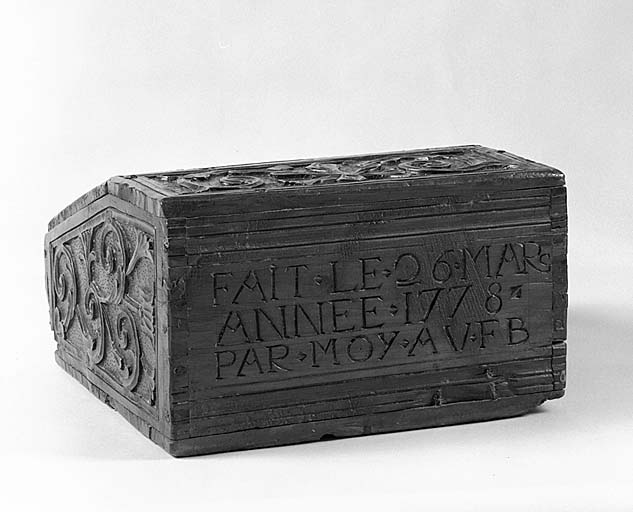 FAIT·LE·26·MARC
ANNEE·1778·
PAR·MOY·AV·FB